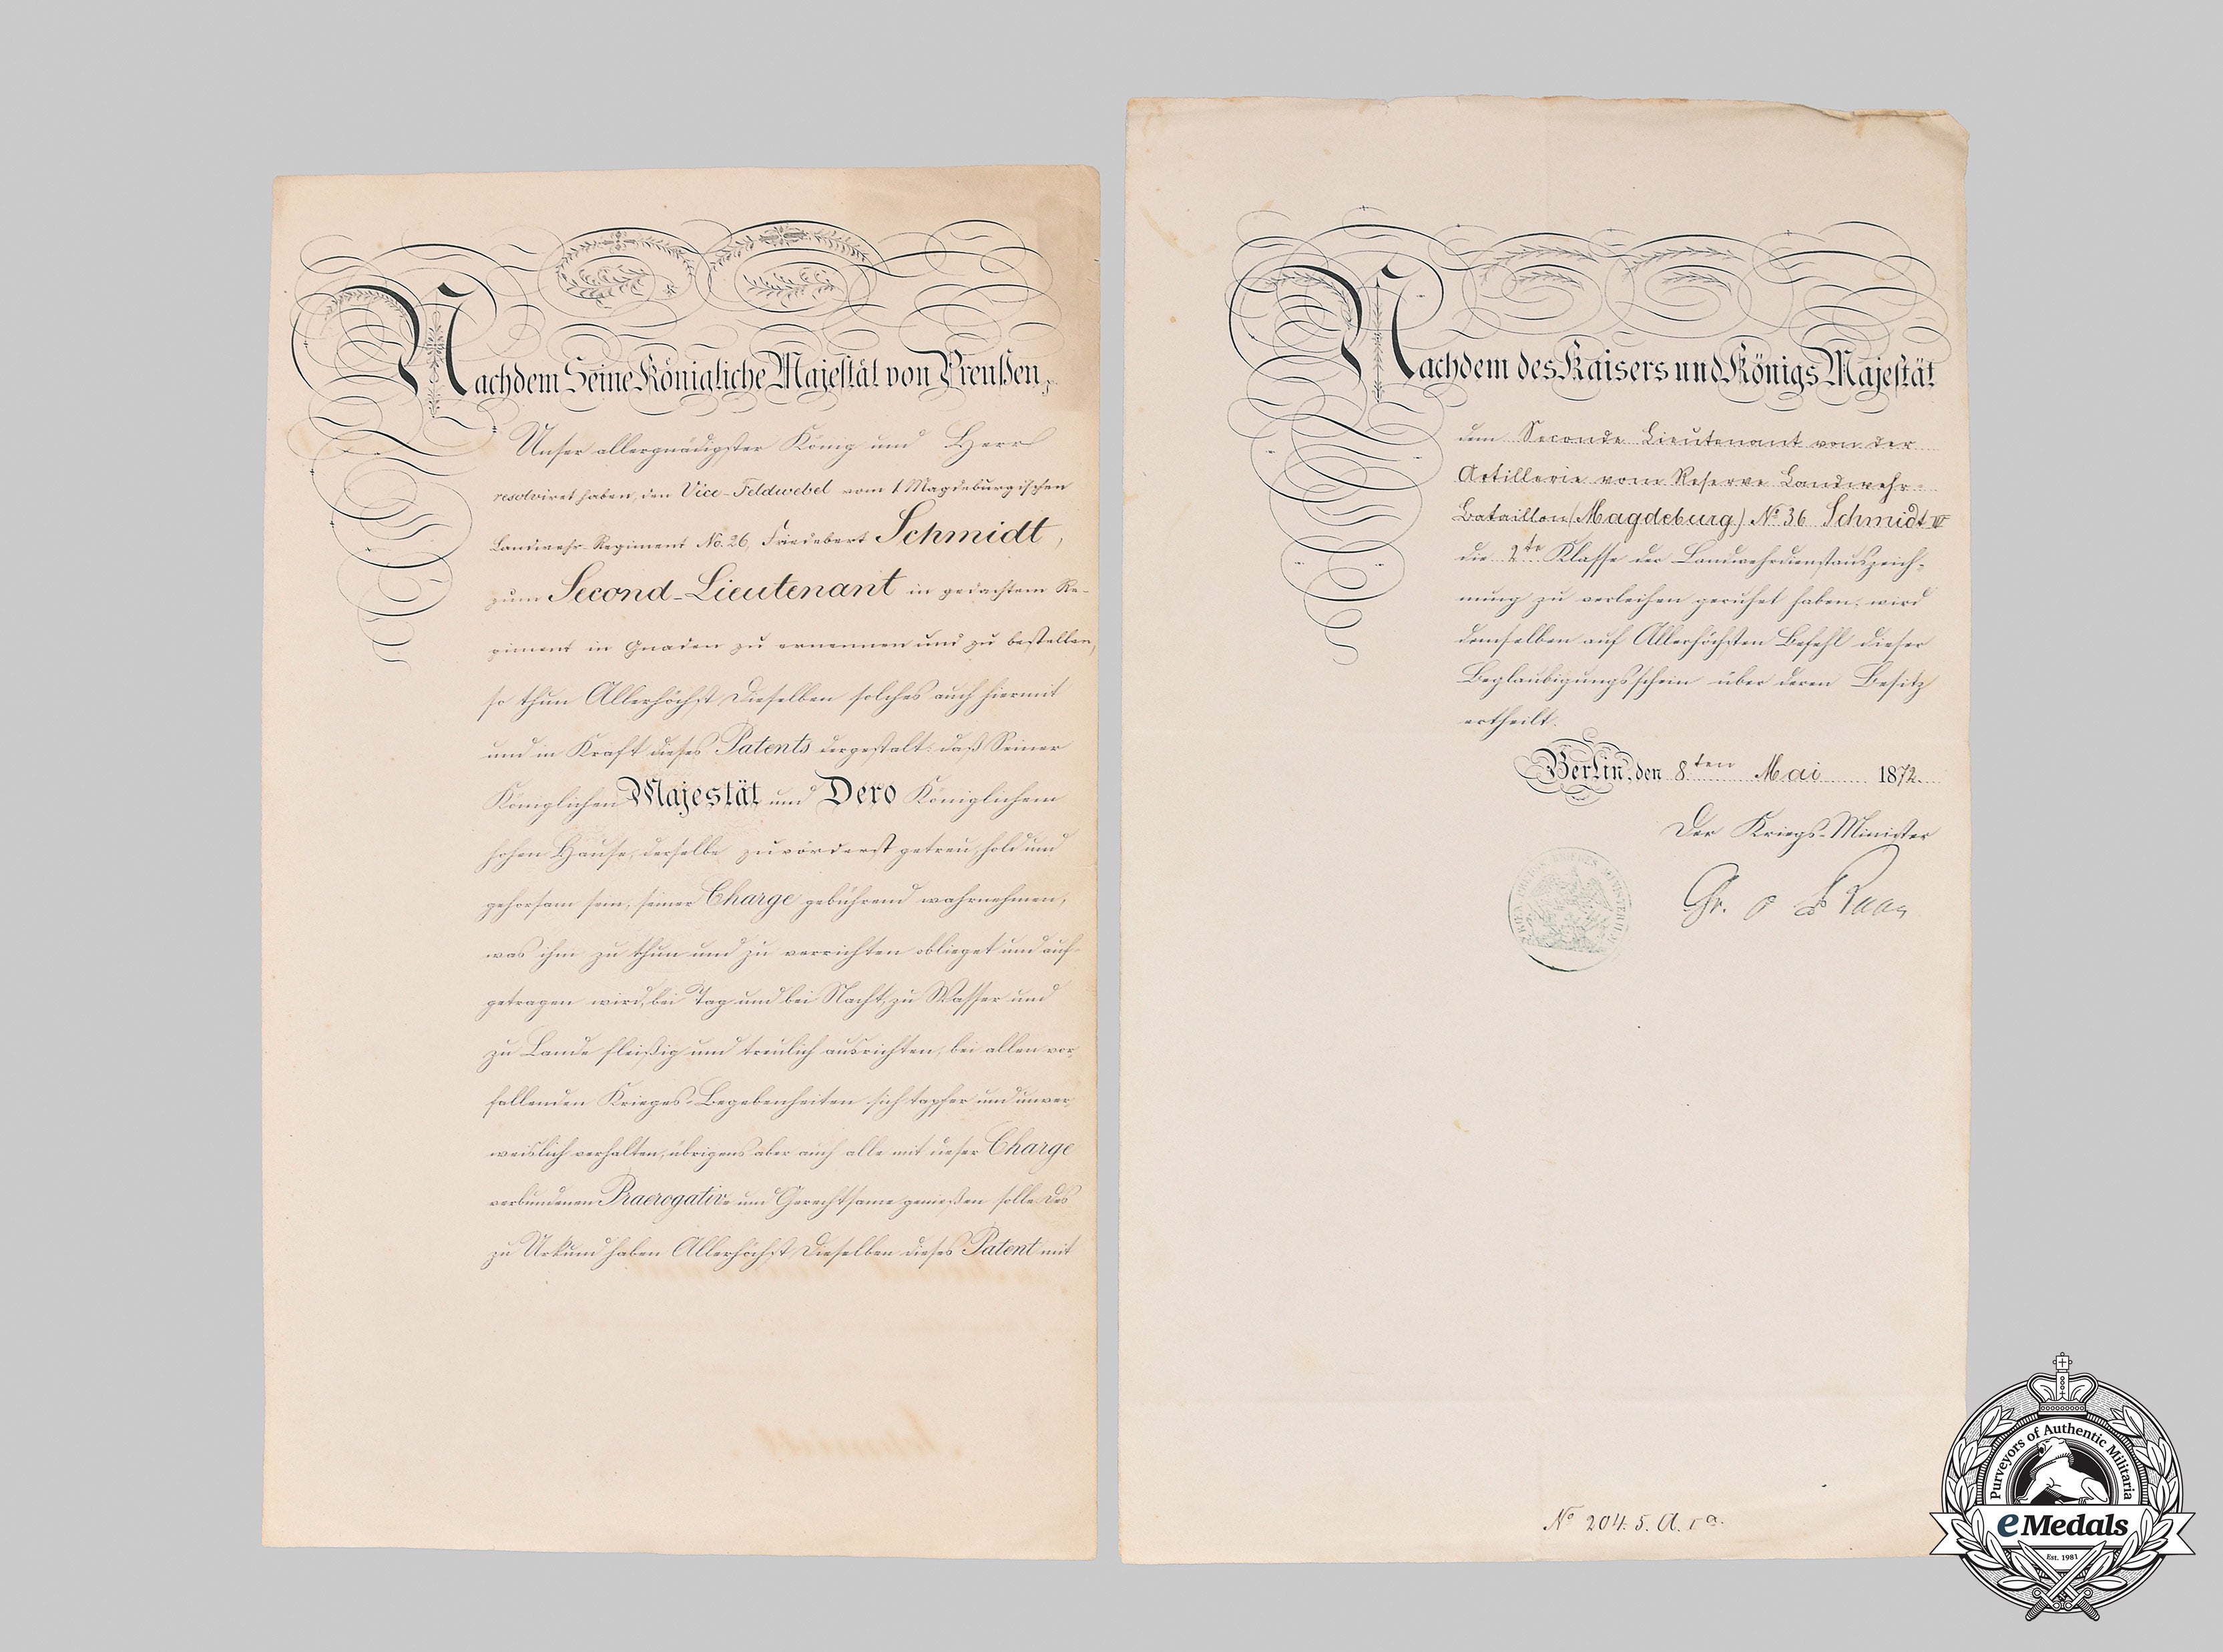 Nachdem Seine Königliche Majestät von Preußen,
Unser allergnädigster König und Herr
resolviret haben, den Vice-Feldwebel vom 1. Magdeburgischen
Landwehr-Regiment No. 26, Friedebert Schmidt,
zum Second-Lieutenant in gedachtem Re-
giment in Gnaden zu ernennen und zu bestellen,
so thun Allerhöchst Dieselben solches auch hiermit
und in Kraft dieses Patents dergestalt: daß Seiner
Königlichen Majestät und Dero Königlichem
hohen Hause, derselbe zuvörderst getreu, hold und
gehorsam sein, seiner Charge gebührend wahrnehmen,
was ihm zu thun und zu verrichten oblieget und auf-
getragen wird, bei Tag und bei Nacht, zu Wasser und
zu Lande fleißig und treulich ausrichten, bei allen vor-
fallenden Krieges-Begebenheiten sich tapfer und unver-
weislich verhalten, übrigens aber auch alle mit dieser Charge
verbundenen Praerogative und Gerechtsame genießen solle. Des
zu Urkund haben Allerhöchst Dieselben dieses Patent mit
Nachdem des Kaisers und Königs Majestät
dem Seconde Lieutenant von der
Artillerie vom Reserve Landwehr-
Bataillon (Magdeburg) No 36 Schmidt IV
die 2te Klasse der Landwehrdienstauszeich-
nung zu verleihen geruhet haben, wird
demselben auf Allerhöchsten Befehl dieser
Beglaubigungsschein über deren Besitz
ertheilt.
Berlin, den 8ten Mai 1872.
Der Kriegs-Minister
Gr. v Roon
No 204. 5. A. 1a.
Purveyors of Authentic Militaria
eMedals
Est. 1981